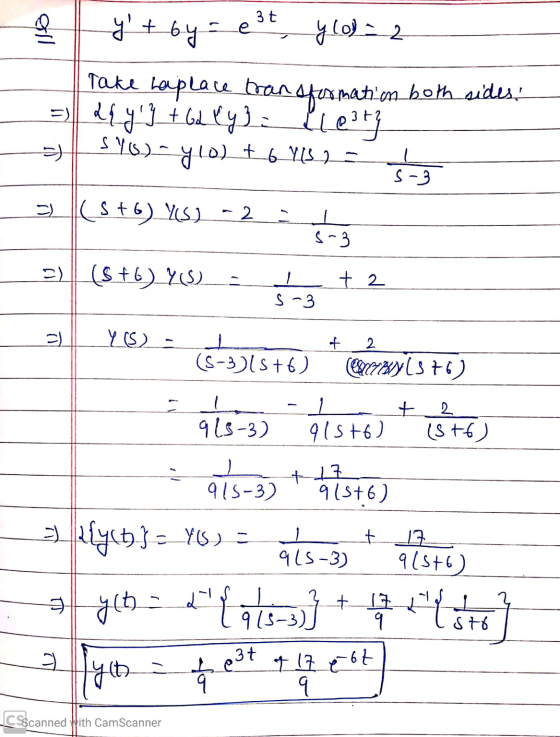 Q y' + 6y = e^{3t}, y(0) = 2
Take Laplace transformation both sides:
⇒ L{y'} + 6L{y} = L{e^{3t}}
⇒ sY(s) - y(0) + 6 Y(s) = 1/(s-3)
⇒ (s+6) Y(s) - 2 = 1/(s-3)
⇒ (s+6) Y(s) = 1/(s-3) + 2
⇒ Y(s) = 1/((s-3)(s+6)) + 2/(s+6)
= 1/(9(s-3)) - 1/(9(s+6)) + 2/(s+6)
= 1/(9(s-3)) + 17/(9(s+6))
⇒ L{y(t)} = Y(s) = 1/(9(s-3)) + 17/(9(s+6))
⇒ y(t) = L^{-1}{1/(9(s-3))} + 17/9 L^{-1}{1/(s+6)}
⇒ y(t) = 1/9 e^{3t} + 17/9 e^{-6t}
CS Scanned with CamScanner